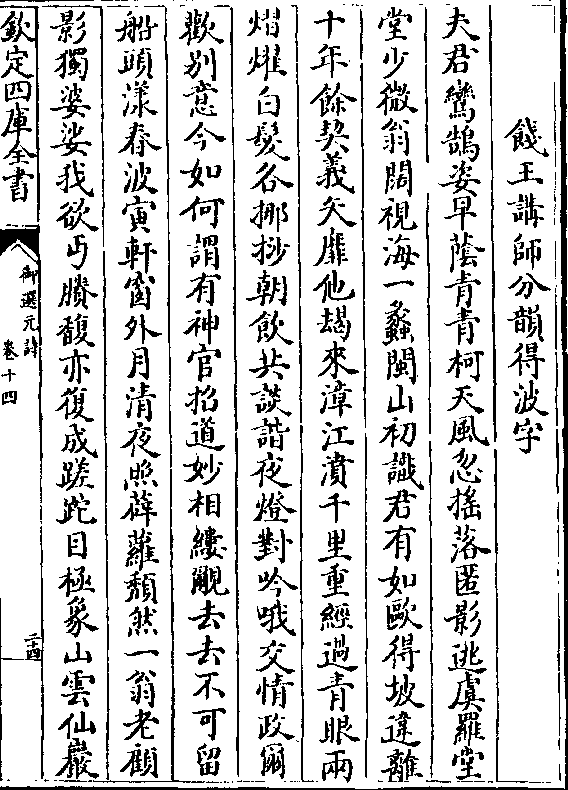 餞王講師分韻得波字
夫君鸞鵠姿早蔭青青柯天風忽搖落匿影逃虞羅堂
堂少微翁闊視海一蠡閩山初識君有如歐得坡違離
十年餘契義矢靡他朅來漳江濆千里重經過青眼兩
熠燿白髮各挪挱朝飲共談諧夜燈對吟哦交情政爾
歡別意今如何謂有神官招道妙相縷覼去去不可留
船頭漾春波寅軒窗外月清夜照薜蘿頽然一翁老顧
影獨婆娑我欲丐賸馥亦復成蹉跎目極象山雲仙巖
欽定四庫全書
御選元詩
卷十四
二十四